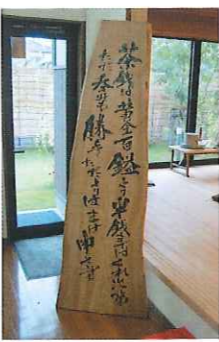 茶銭は黄金百鎰より半銭まではくれ次第
ただ呑も勝手ただよりはまけ申さず